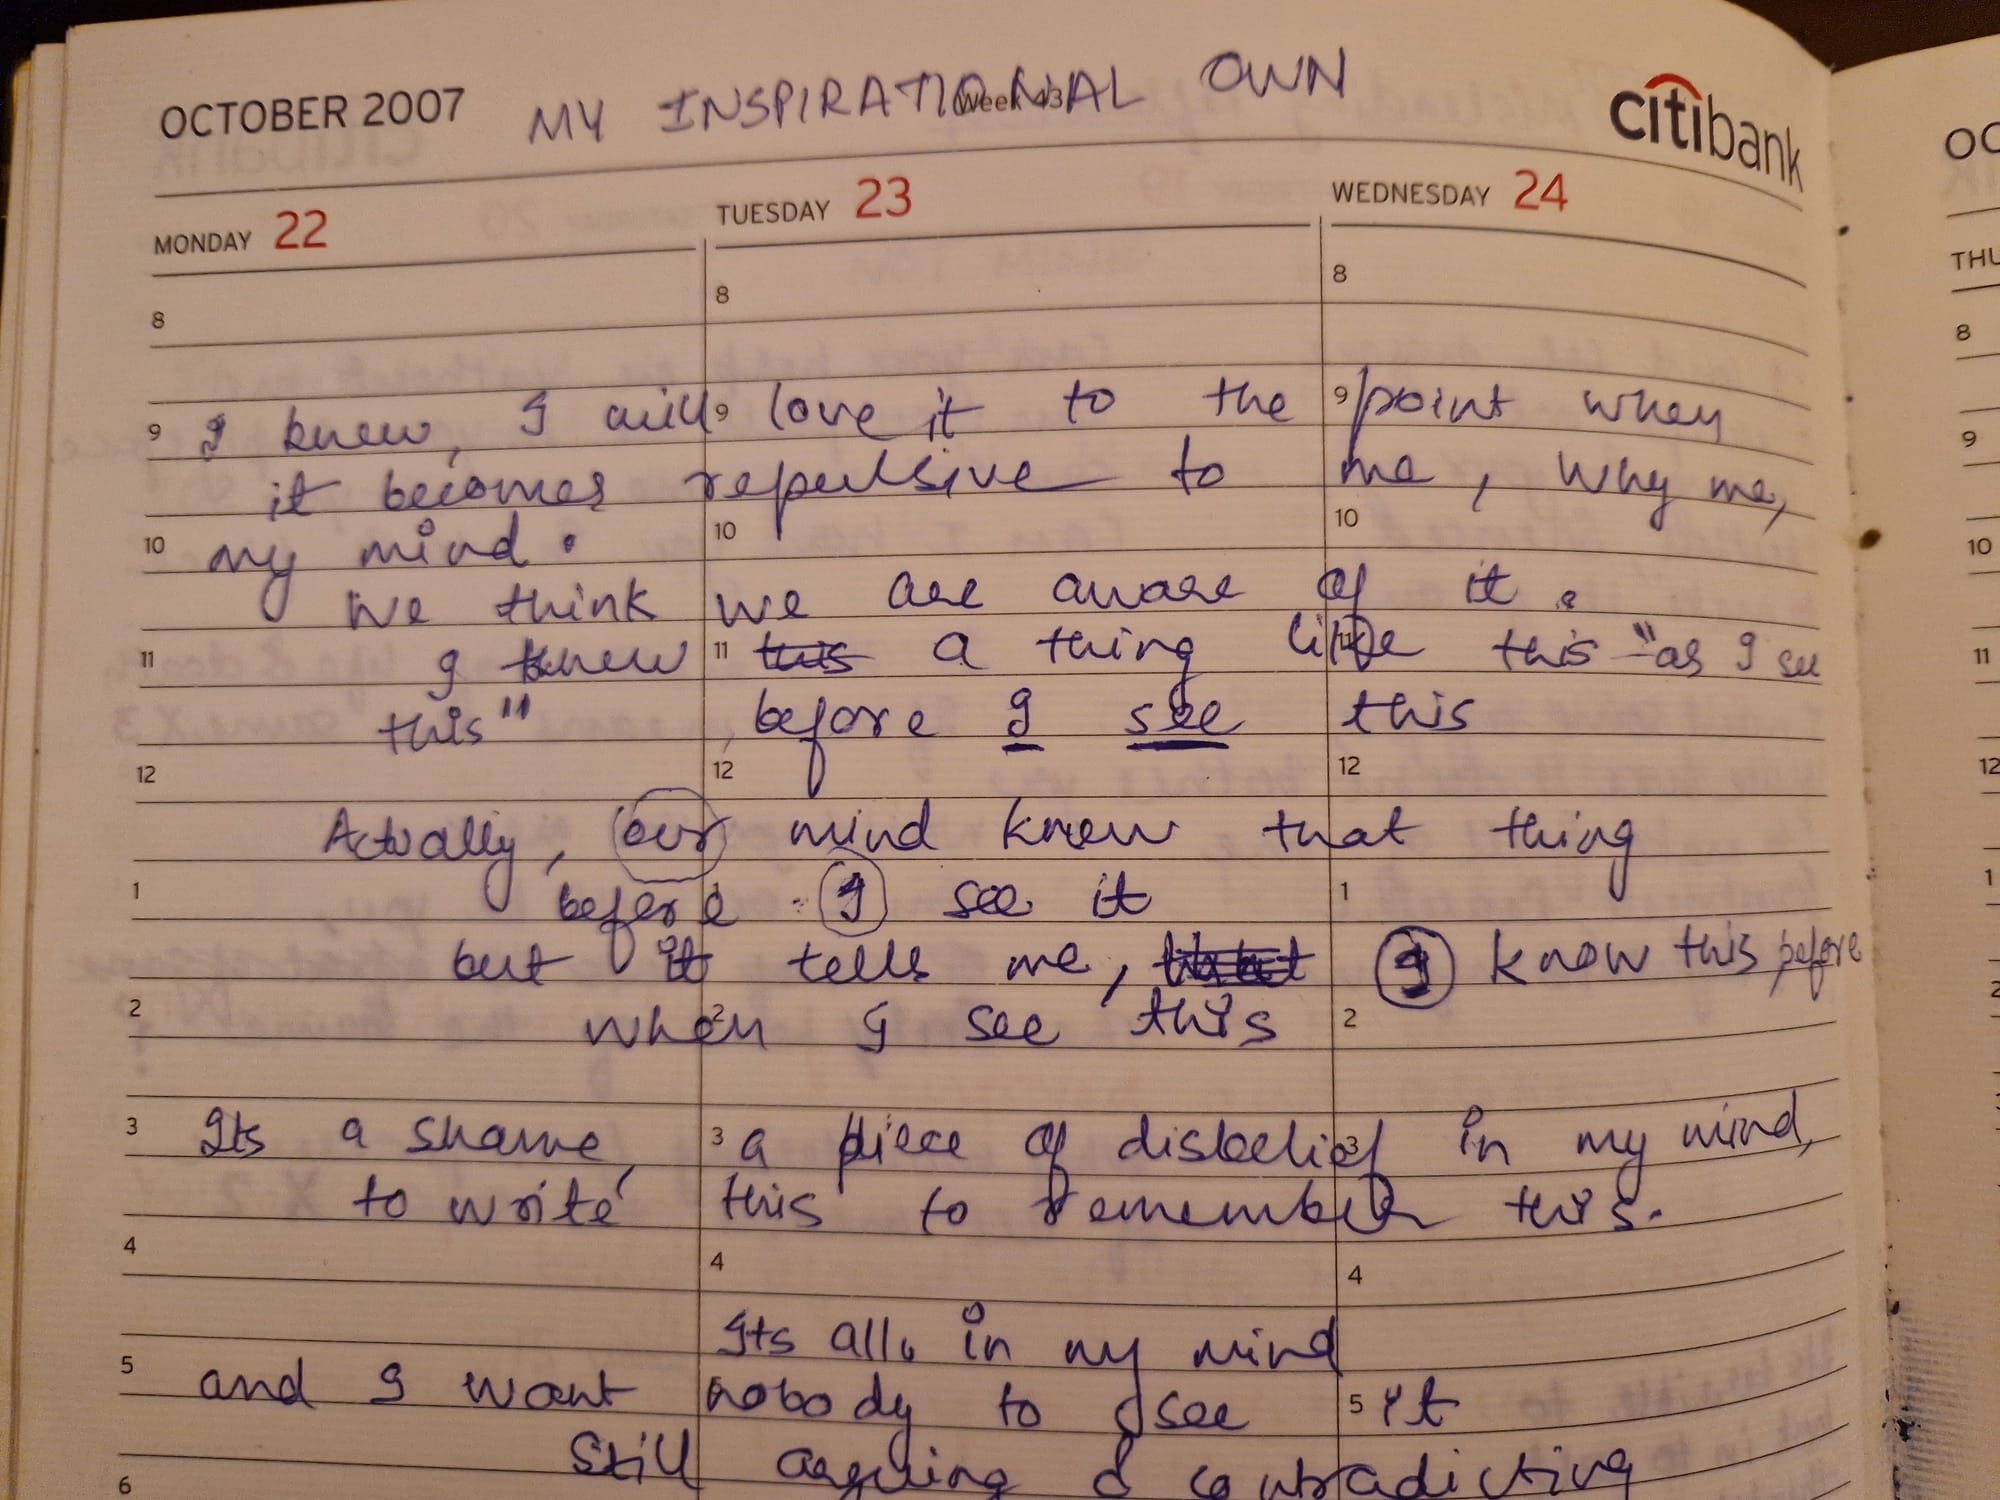 OCTOBER 2007 MY INSPIRATIONAL OWN
Week 43
citibank
MONDAY 22 TUESDAY 23 WEDNESDAY 24
8 8 8
9 I knew, I will 9 love it to the 9 point when
it becomes repulsive to me, why me,
10 my mind. 10 10
we think we are aware of it.
11 I knew 11 this a thing like 11 this "as I see
this", before I see this
12 12 12
Actually, our mind knew that thing
1 before 1 I see it 1
but it tells me, I know this before
2 when 2 I see this 2
3 Its a shame, 3 a piece of disbelief 3 in my mind,
to write this to remember this.
4 4 4
Its all, in my mind
5 and I want nobody to see 5 it
6 Still arguing & contradicting
OC
THU
8
9
10
11
12
1
2